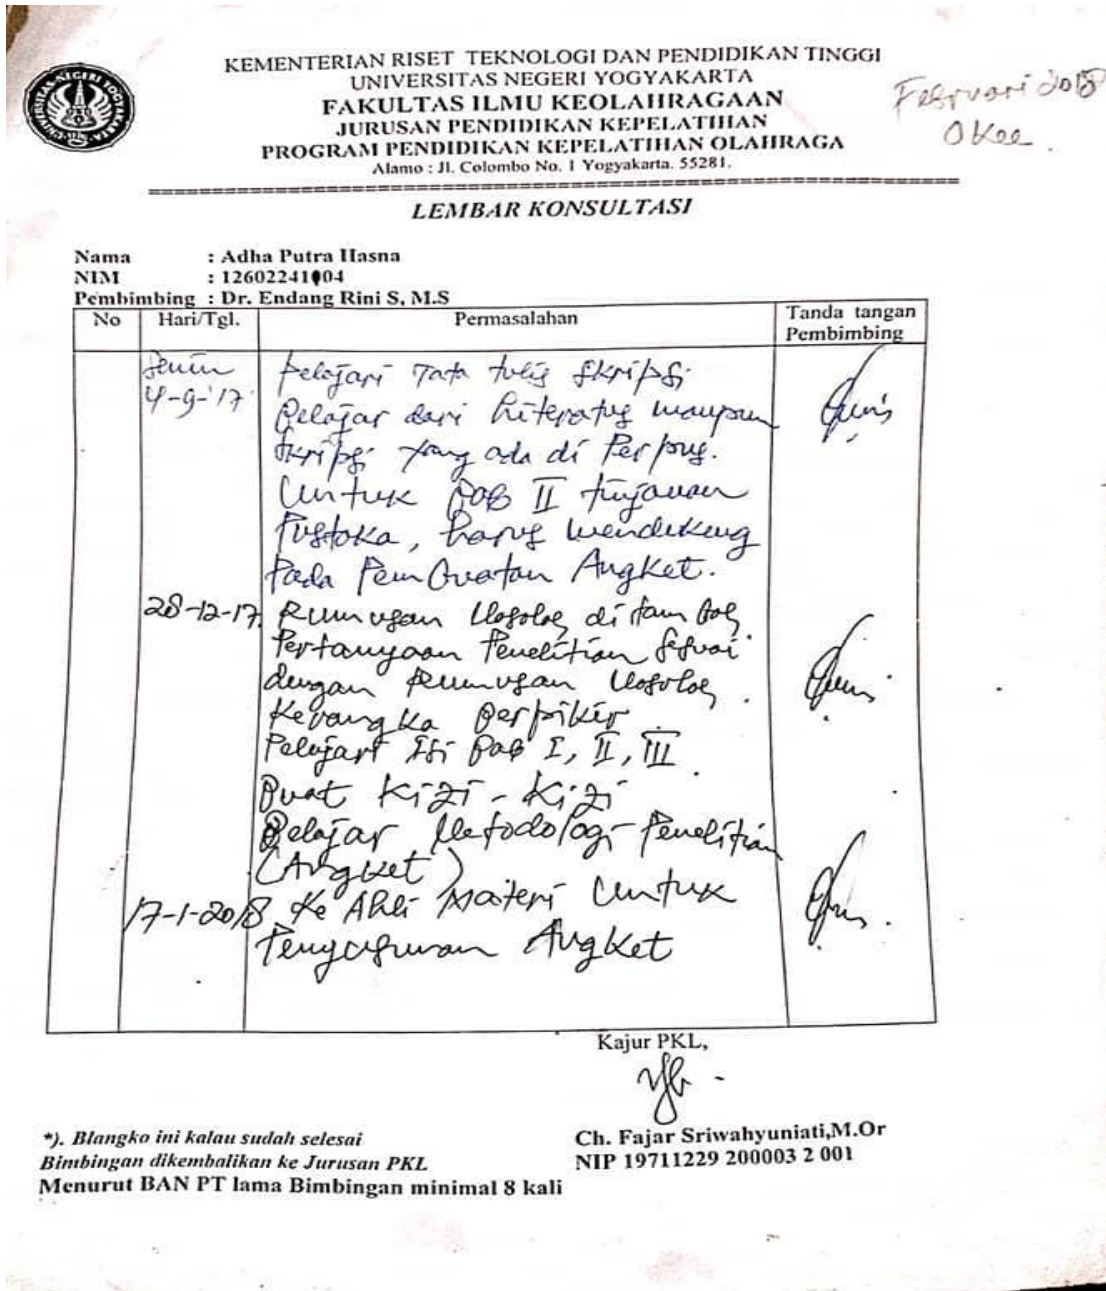 KEMENTERIAN RISET TEKNOLOGI DAN PENDIDIKAN TINGGI
UNIVERSITAS NEGERI YOGYAKARTA
FAKULTAS ILMU KEOLAHRAGAAN
JURUSAN PENDIDIKAN KEPELATIHAN
PROGRAM PENDIDIKAN KEPELATIHAN OLAHRAGA
Alamo : Jl. Colombo No. 1 Yogyakarta. 55281.
Februari 2018
Okee.
LEMBAR KONSULTASI
Nama : Adha Putra Hasna
NIM : 12602241004
Pembimbing : Dr. Endang Rini S, M.S
No Hari/Tgl. Permasalahan Tanda tangan Pembimbing
Senin
4-9-'17
Pelajari Tata tulis Skripsi
Belajar dari Literatur maupun
Skripsi yang ada di Perpus.
Untuk Bab II tinjauan
Pustaka, harus mendukung
Pada Pembuatan Angket.
28-12-17. Rumusan Masalah ditambah
Pertanyaan Penelitian Sesuai
dengan Rumusan Masalah.
Kerangka Berpikir
Pelajari Isi Bab I, II, III.
Buat Kizi-Kizi
Belajar Metodologi Penelitian
(Angket)
17-1-2018 Ke Ahli Materi Untuk
Penyusunan Angket
Kajur PKL,
Ch. Fajar Sriwahyuniati,M.Or
NIP 19711229 200003 2 001
*). Blangko ini kalau sudah selesai
Bimbingan dikembalikan ke Jurusan PKL
Menurut BAN PT lama Bimbingan minimal 8 kali